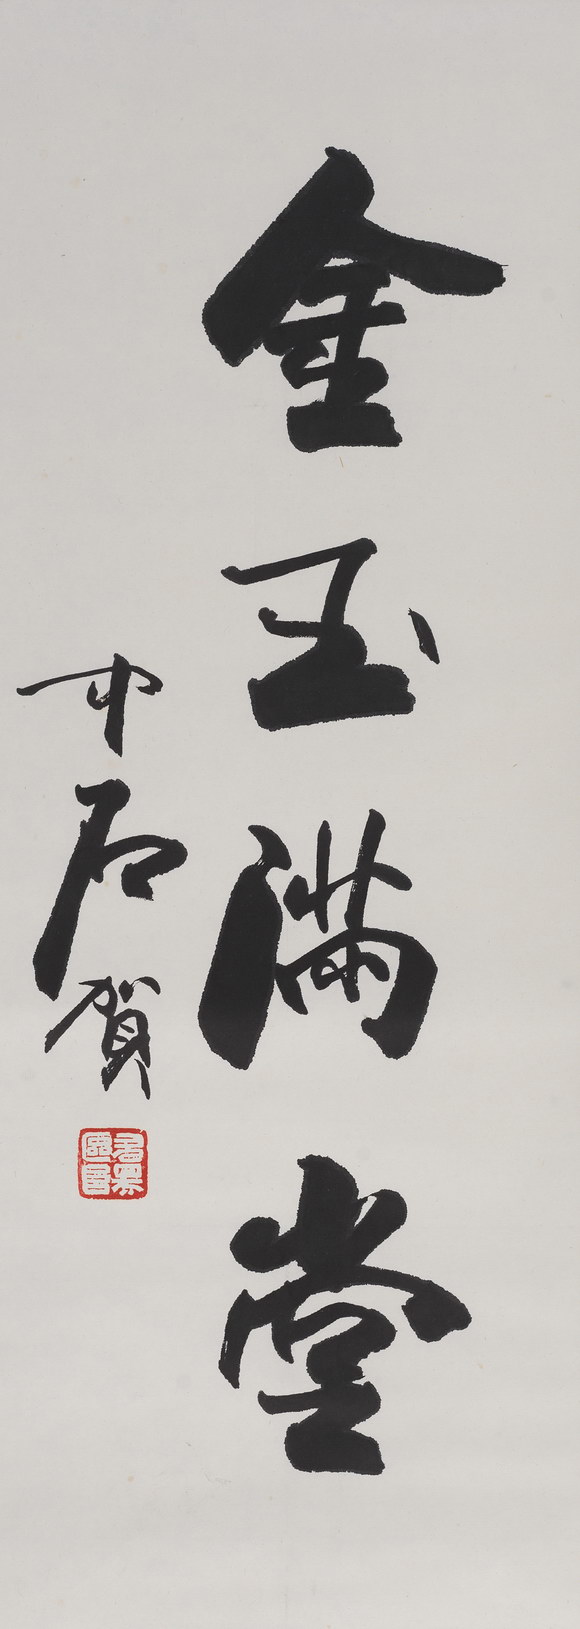 金玉满堂
中石贺